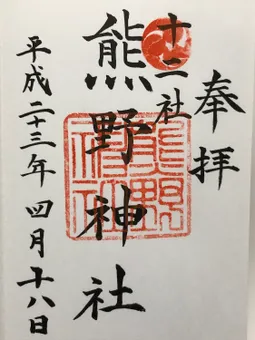 奉拝
十二社
熊野神社
平成二十三年四月十八日
熊野神社